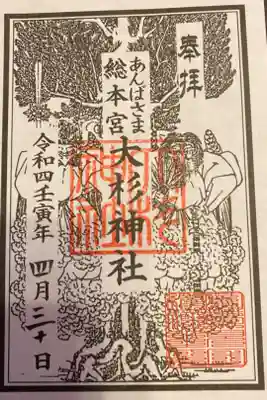 奉拝
あんばさま
総本宮
大杉神社
令和四壬寅年
四月三十日